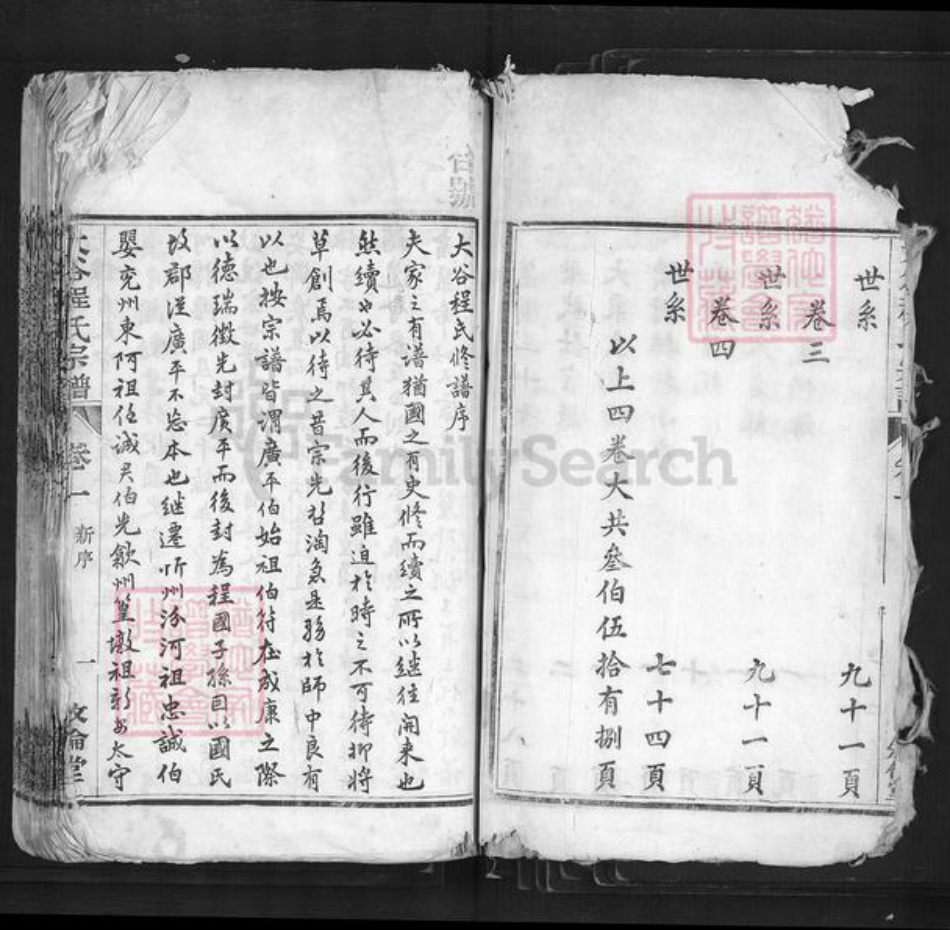 世系
九十一頁
卷三
世系
九十一頁
卷四
世系
七十四頁
以上四卷大共叁伯伍拾有捌頁
大谷程氏修譜序
夫家之有譜猶國之有史修而續之所以繼往開来也
然續也必待其人而後行雖迫於時之不可待抑將
草創焉以待之昔宗光哲淘急是務於師中良有
以也按宗譜皆謂廣平伯始祖伯符在成康之際
以德瑞徵先封廣平而後封為程國子孫囙以國氏
故郡從廣平不忘本也継遷忻州汾河祖忠誠伯
嬰兖州東阿祖任誠吳伯光歙州篁墩祖新安太守
程氏宗譜
卷一
新序
一
文倫堂
FamilySearch